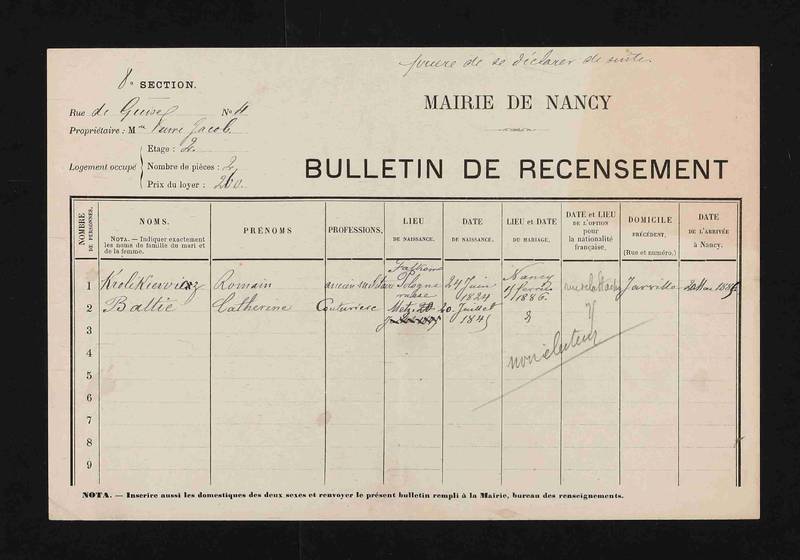 de se déclarer de suite.
8e SECTION.
MAIRIE DE NANCY
Rue de Guise No 4
Propriétaire : Mme Jacob
Logement occupé
Etage : 2
Nombre de pièces : 2
Prix du loyer : 260
BULLETIN DE RECENSEMENT
NOMBRE DE PERSONNES.
NOMS.
NOTA. — Indiquer exactement les noms de famille du mari et de la femme.
PRÉNOMS
PROFESSIONS,
LIEU DE NAISSANCE.
DATE DE NAISSANCE.
LIEU et DATE DU MARIAGE.
DATE et LIEU DE L'OPTION pour la nationalité française.
DOMICILE PRÉCÉDENT. (Rue et numéro.)
DATE DE L'ARRIVÉE à Nancy.
1 Romain Pologne russe 24 Juin 1824 Nancy février 1886. Jarville
2 Battie Catherine Couturière Metz 20 Juillet 1845
3
non électeur
4
5
6
7
8
9
NOTA. — Inscrire aussi les domestiques des deux sexes et renvoyer le présent bulletin rempli à la Mairie, bureau des renseignements.